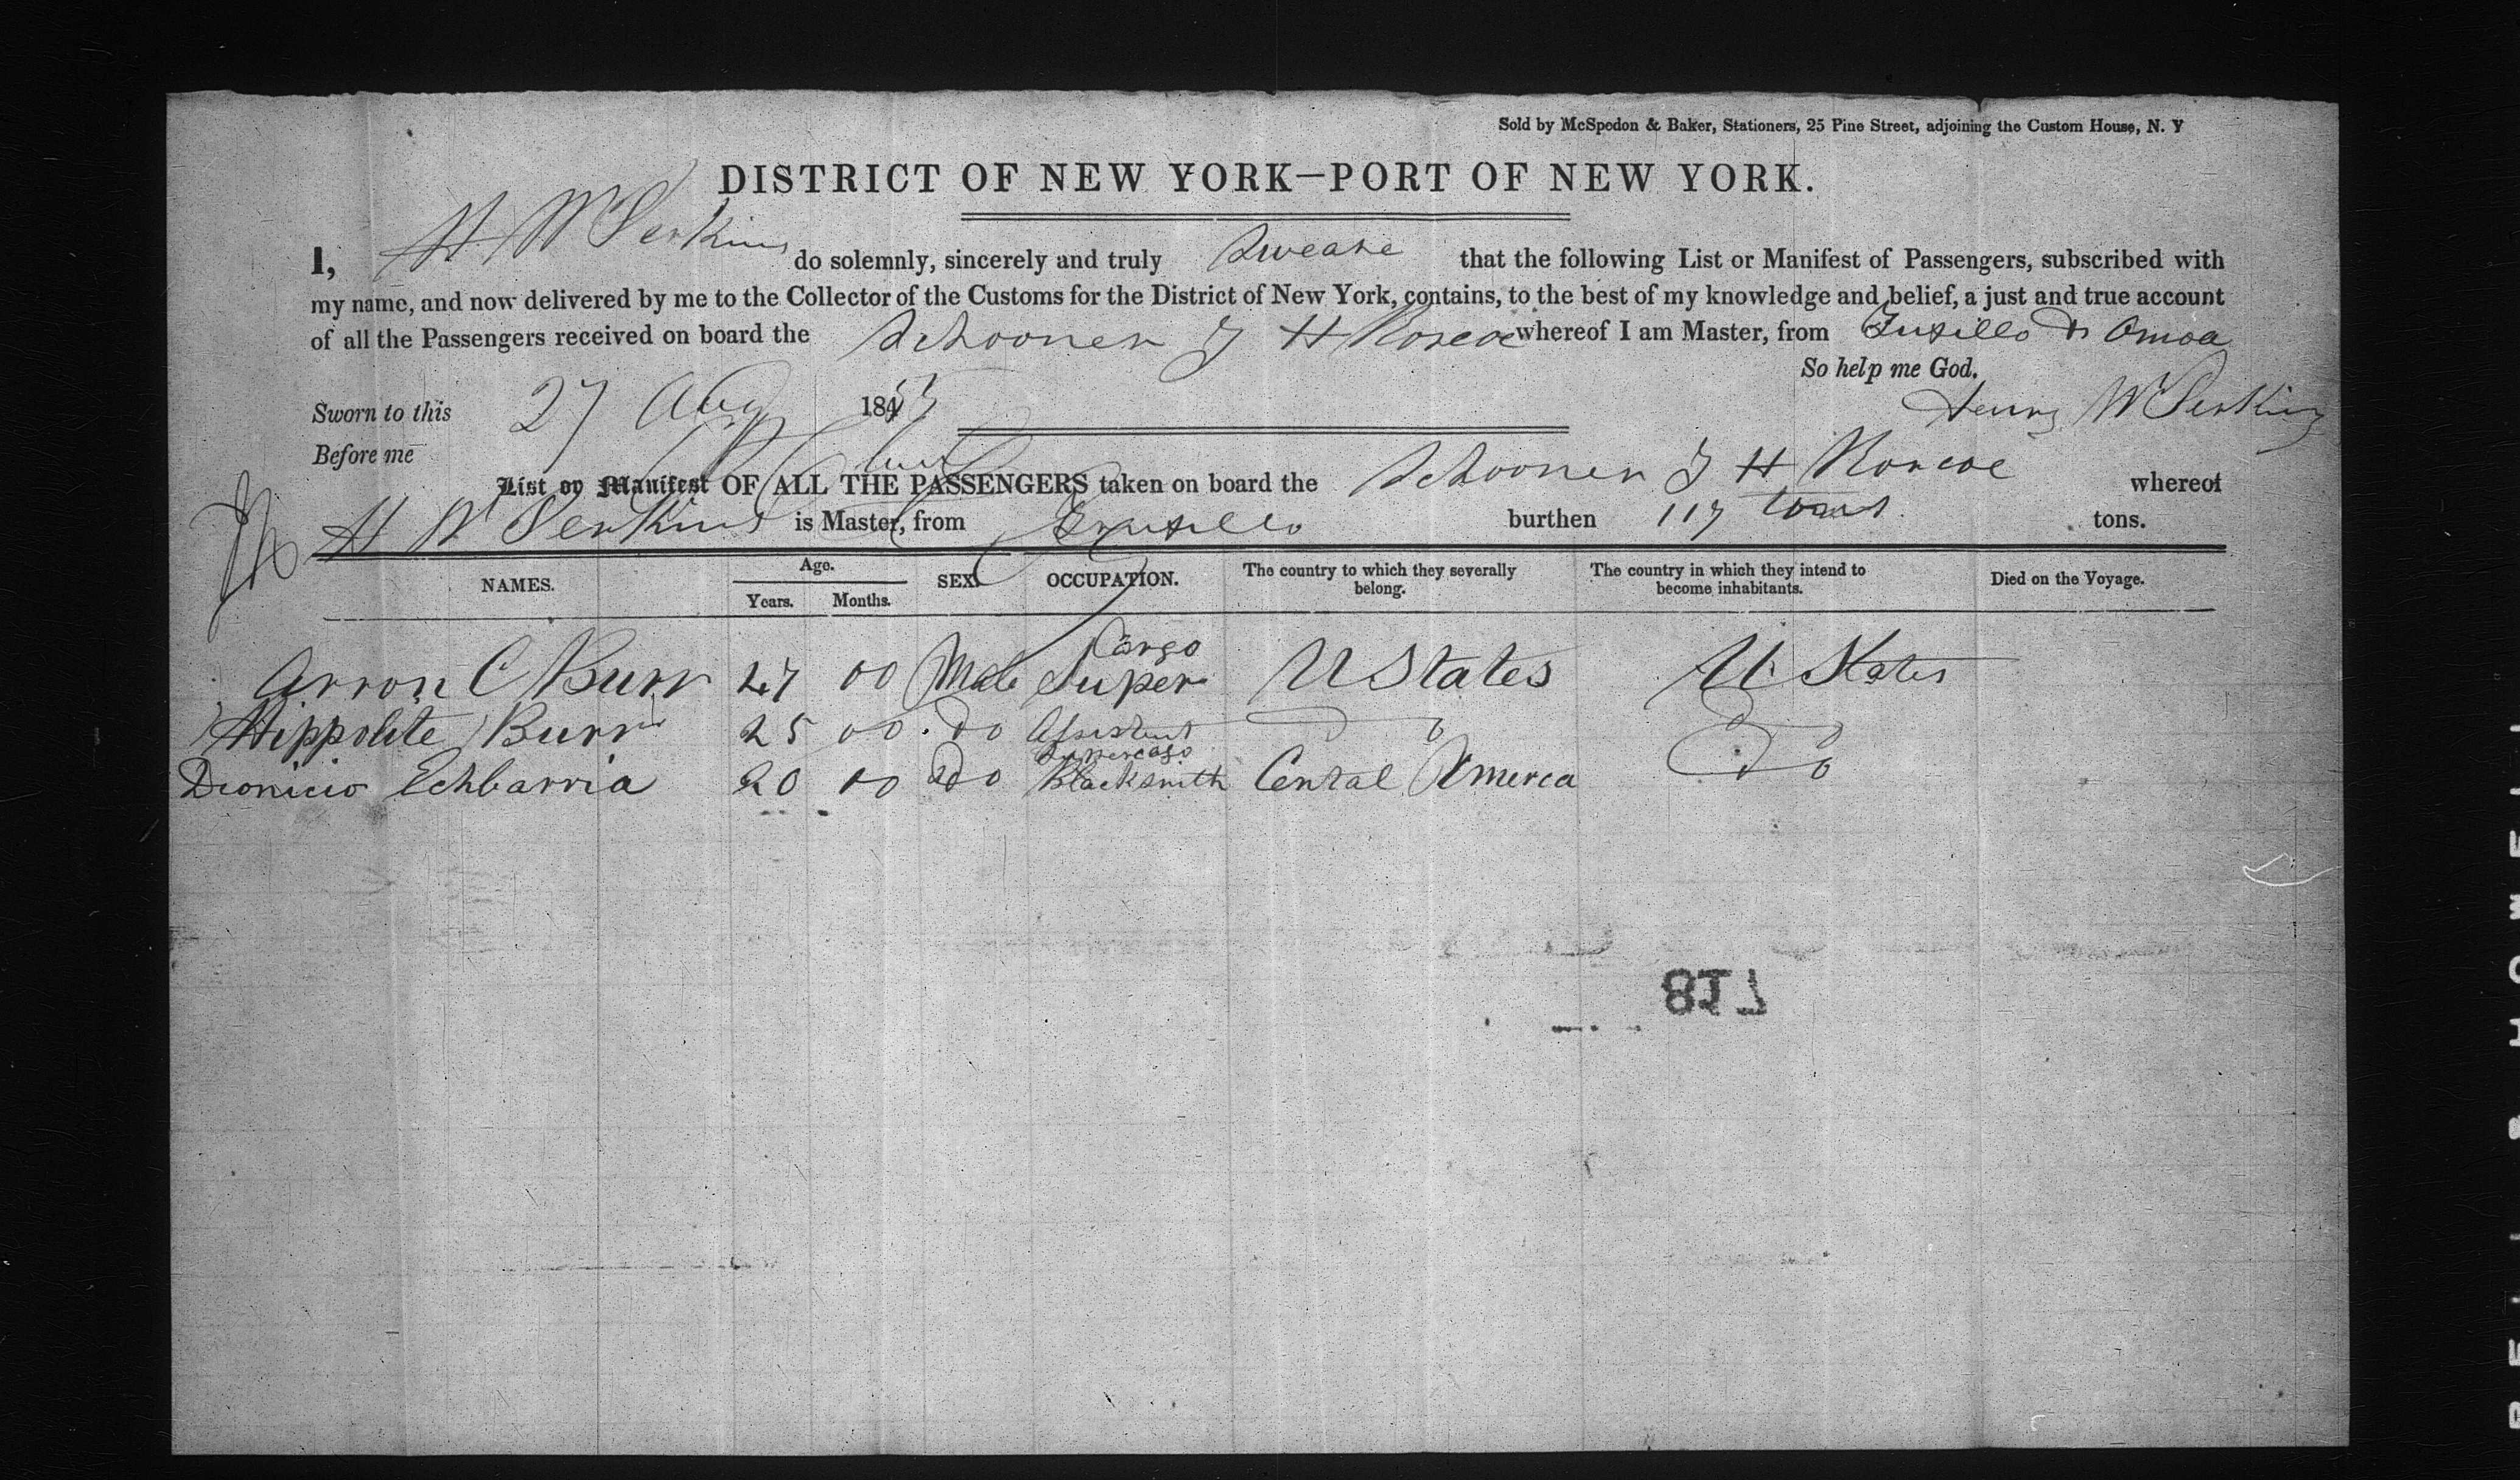 Sold by McSpedon & Baker, Stationers, 25 Pine Street, adjoining the Custom House, N. Y
DISTRICT OF NEW YORK—PORT OF NEW YORK.
I, H W Perkins do solemnly, sincerely and truly Sweare that the following List or Manifest of Passengers, subscribed with
my name, and now delivered by me to the Collector of the Customs for the District of New York, contains, to the best of my knowledge and belief, a just and true account
of all the Passengers received on board the Schooner J H Roscoe whereof I am Master, from Truxillo & Omoa
So help me God.
Sworn to this 27 Aug 185
Henry W Perkins
Before me
List or Manifest OF ALL THE PASSENGERS taken on board the Schooner J H Roscoe whereof
H W Perkins is Master, from Truxillo burthen 117 tons. tons.
NAMES. Age. Years. Months. SEX. OCCUPATION. The country to which they severally belong. The country in which they intend to become inhabitants. Died on the Voyage.
Arron C Burr 27 00 Male Super Cargo U States U States
Hippolite Burr 25 00 Do Assistant Supercago Do Do
Dionicio Echbarria 20 00 Do Blacksmith Cenral Amerca Do
817